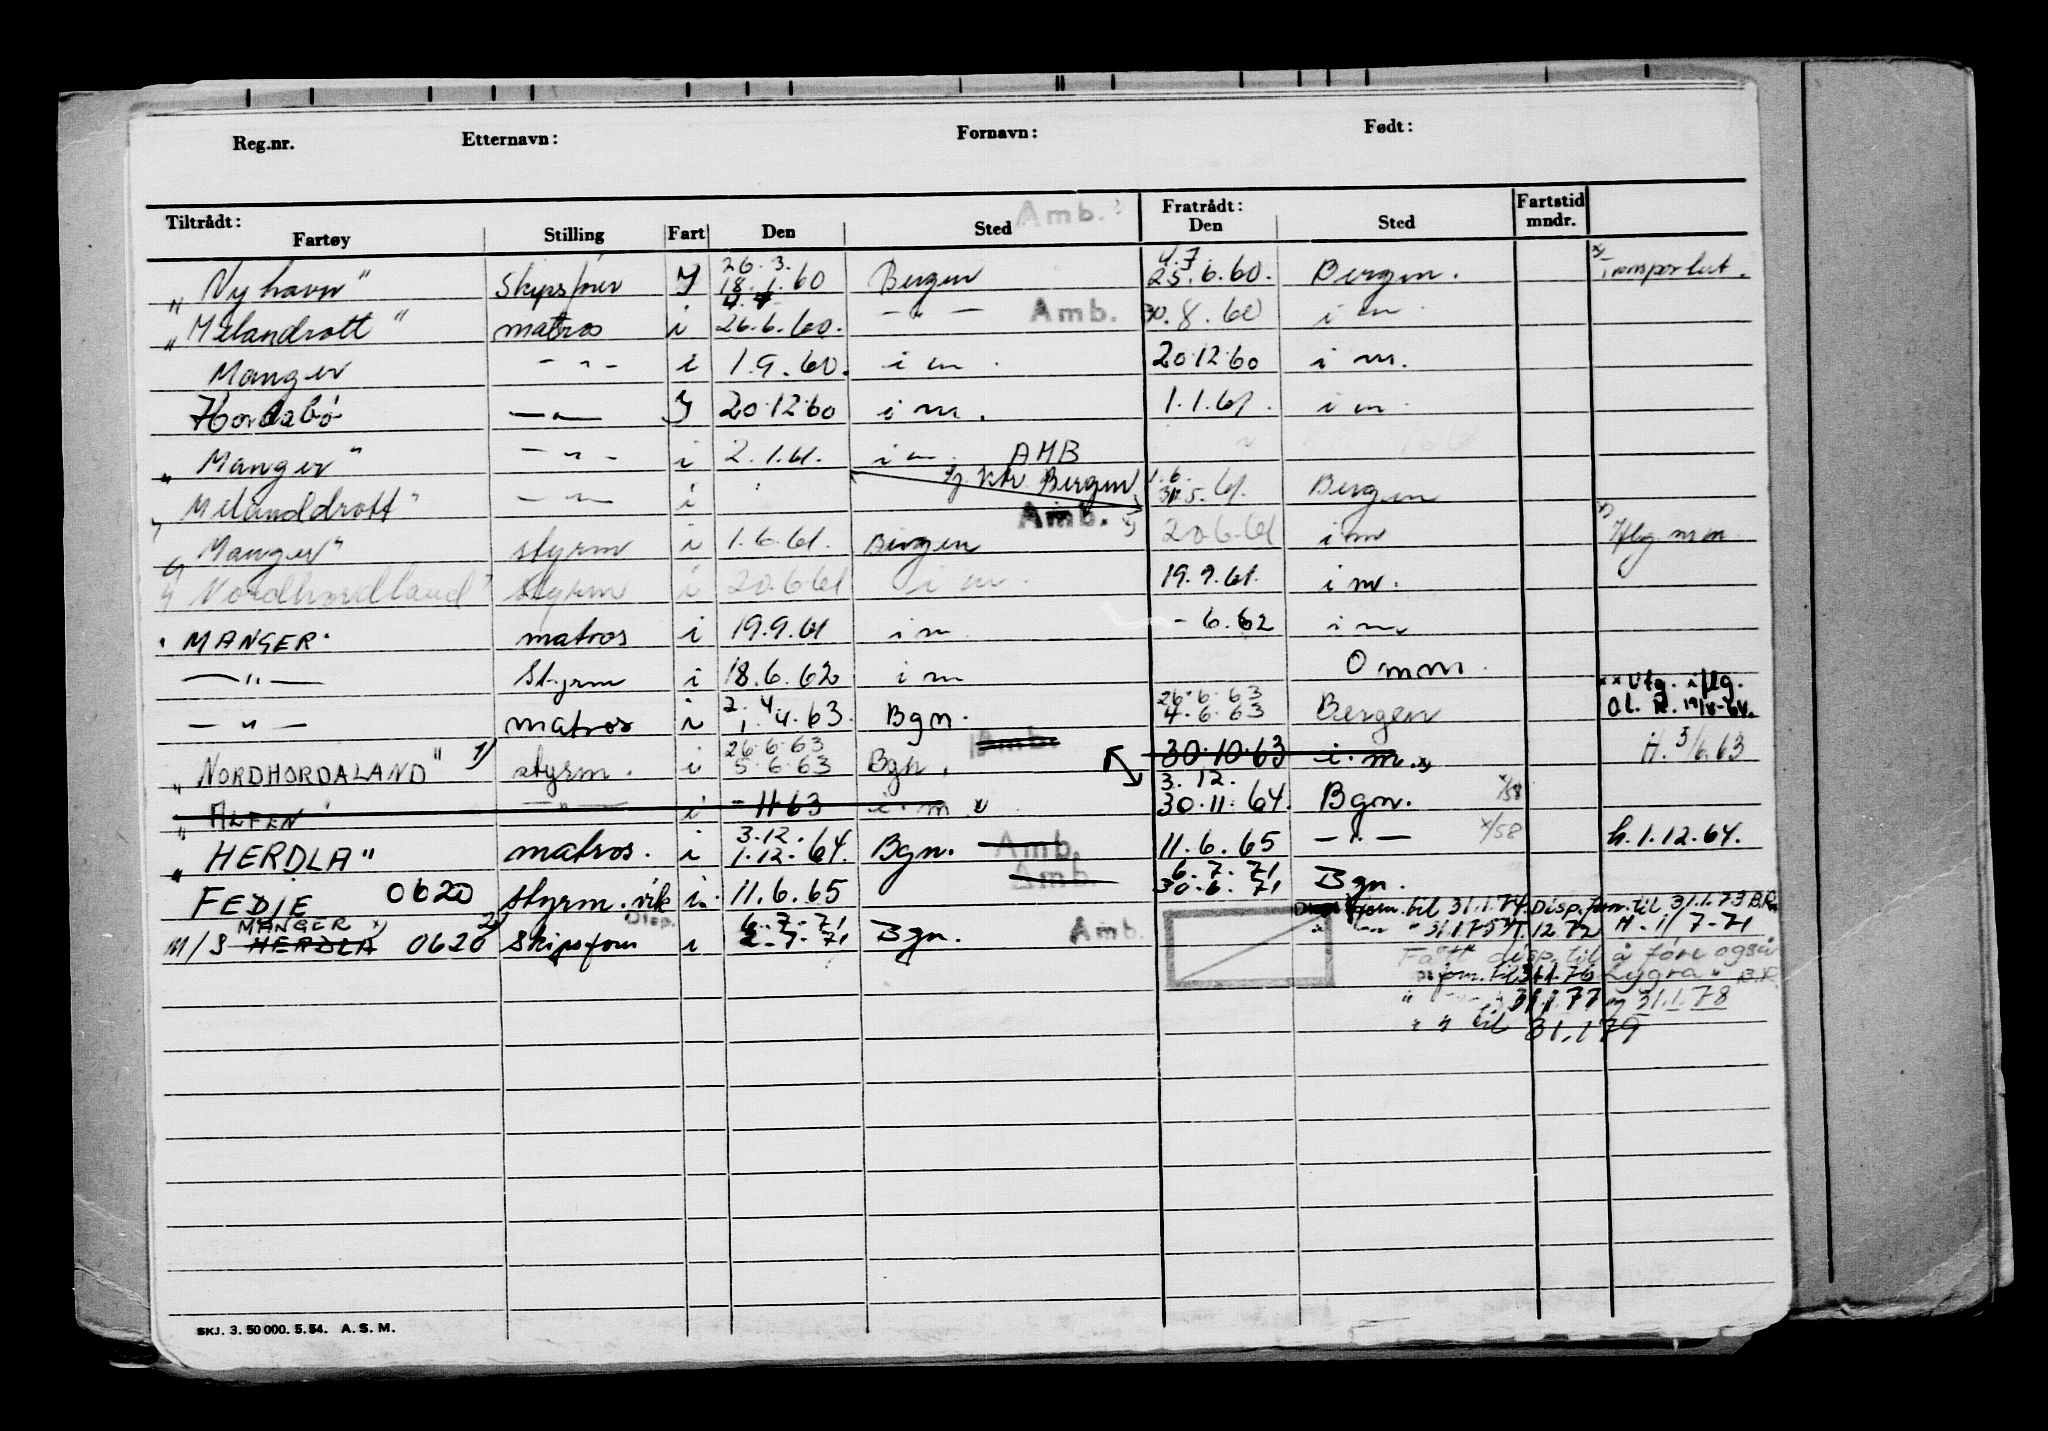 Reg.nr. Etternavn: Fornavn: Født:
Tiltrådt: Fratrådt: Fartstid
Fartøy Stilling Fart Den Sted Amb. Den Sted mndr.
26.3. 4.7
„Nyhavn" Skipsfører Y 18.1.60 Bergen 25.6.60. Bergen.
„Melandrott" matros i 26.6.60. — " — Amb. 30.8.60 i m
Manger - " - i 1.9.60. i m. 20.12.60 i m.
Hordabø — " — Y 20.12.60 i m. 1.1.61. i m.
„Manger" - " - i 2.1.61. i m. AMB
fj. ktr. Bergen 1.6.
Melanddrott" — " — i 31.5.61. Bergen
Amb.
„Manger" styrm i 1.6.61. Bergen 20.6.61 i m Iflg. m.m.
„Nordhordland" styrm i 20.6.61 i m. 19.9.61. i m.
"MANGER" matros i 19.9.61 i m - 6.62 i m
— " — Styrm i 18.6.62 i m Omm.
2. 4 26.6.63 xx Utg. iflg.
— " — matros i 1.4.63. Bgn. 4.6.63 Bergen Ol. R. 19/8-64.
26.6.63 Amb.
„NORDHORDALAND" 1) styrm. i 5.6.63 Bgn. 30.10.63 i.m. H. 5/6.63
3.12.
„ALFEN" — " — i - 11.63 i.m 30.11.64. Bgn. x/58
3.12.
„HERDLA" matros. i 1.12.64. Bgn. Amb. 11.6.65 — " — x/58 h. 1.12.64.
6.7.71
FEDJE 0620 styrm.vik i. 11.6.65 Amb. 30.6.71 Bgn.
MANGER x) 2) Disp. 6.7.71 forn. til 31.1.74. Disp. forn. til 31.1.73 B.R.
M/S HERDLA 0620 Skipsfører i 2.7.71 Bgn. Amb. " 31.1.75 12.72 H. 1/7-71
Fått disp. til å føre også
forn. til 31.1.76 „Lygra" B.R.
" 31.1.77 og 31.1.78
" " til 31.1.79
SKJ. 3. 50 000. 5.54. A. S. M.